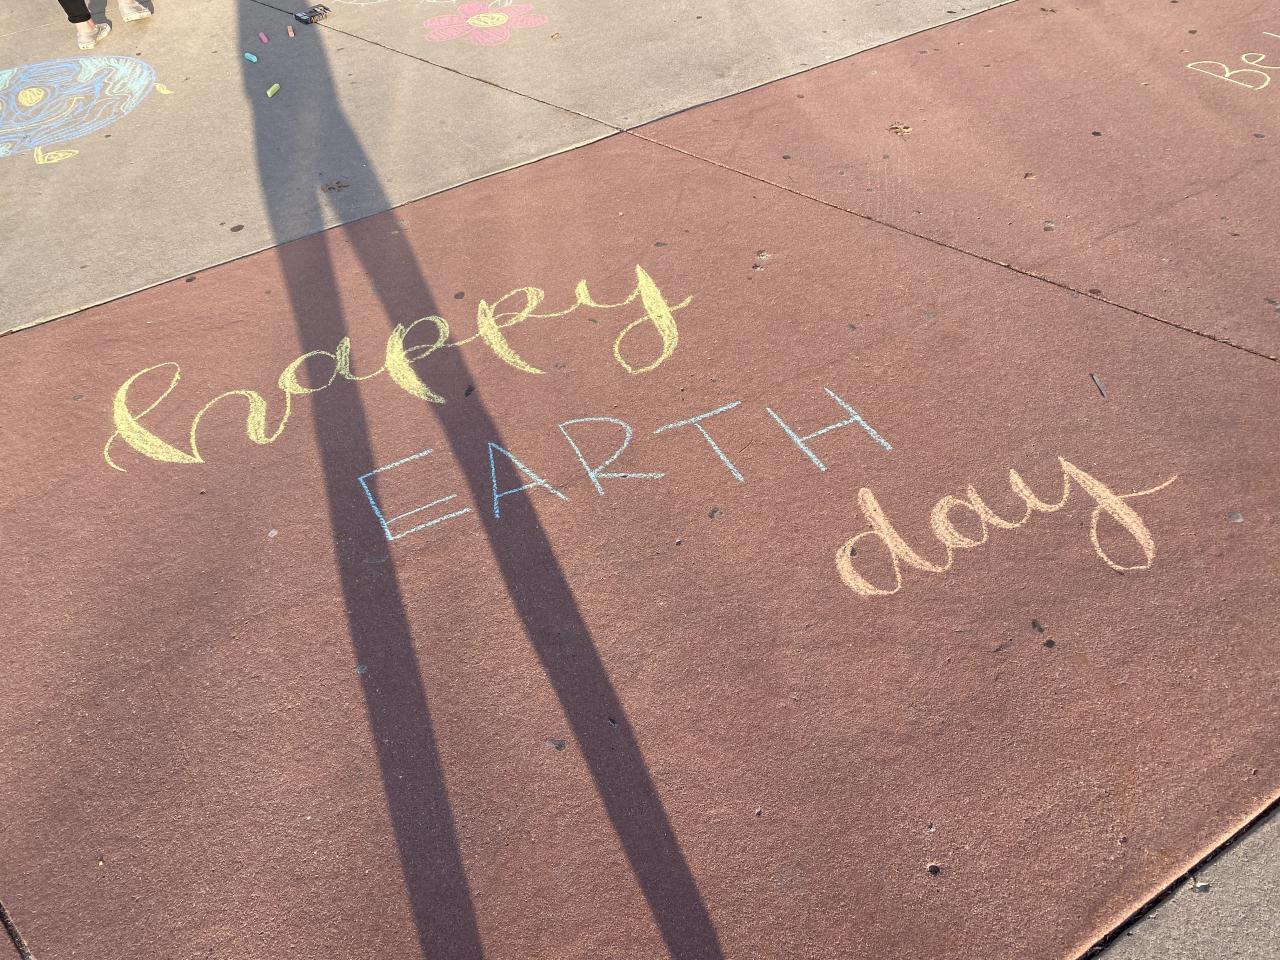 happy
EARTH
day
Be